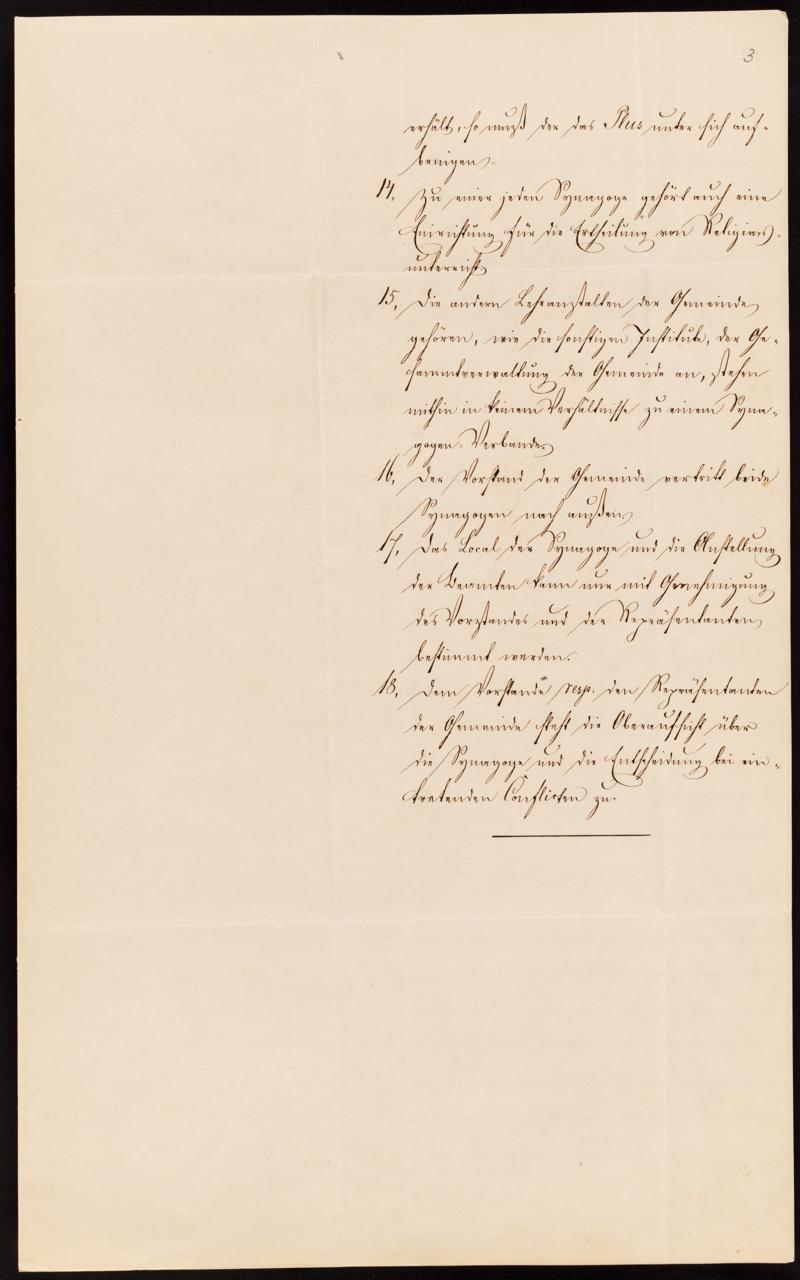 3
erhält, so muß der das Plus unter sich auf-
bringen.
14, Zu einer jeden Synagoge gehört auch eine
Einrichtung für die Ertheilung von Religions-
unterricht.
15, Die andern Lehranstalten der Gemeinde
gehören, wie die sonstigen Institute, der Ge-
sammtverwaltung der Gemeinde an, stehen
mithin in keinem Verhältnisse zu einem Syna-
gogen-Verbande.
16, Der Vorstand der Gemeinde vertritt beide
Synagogen nach außen.
17, Das Local der Synagoge und die Anstellung
der Beamten kann nur mit Genehmigung
des Vorstandes und der Repräsentanten
bestimmt werden.
18, Dem Vorstande resp. den Repräsentanten
der Gemeinde steht die Oberaufsicht über
die Synagoge und die Entscheidung bei ein-
tretenden Conflicten zu.